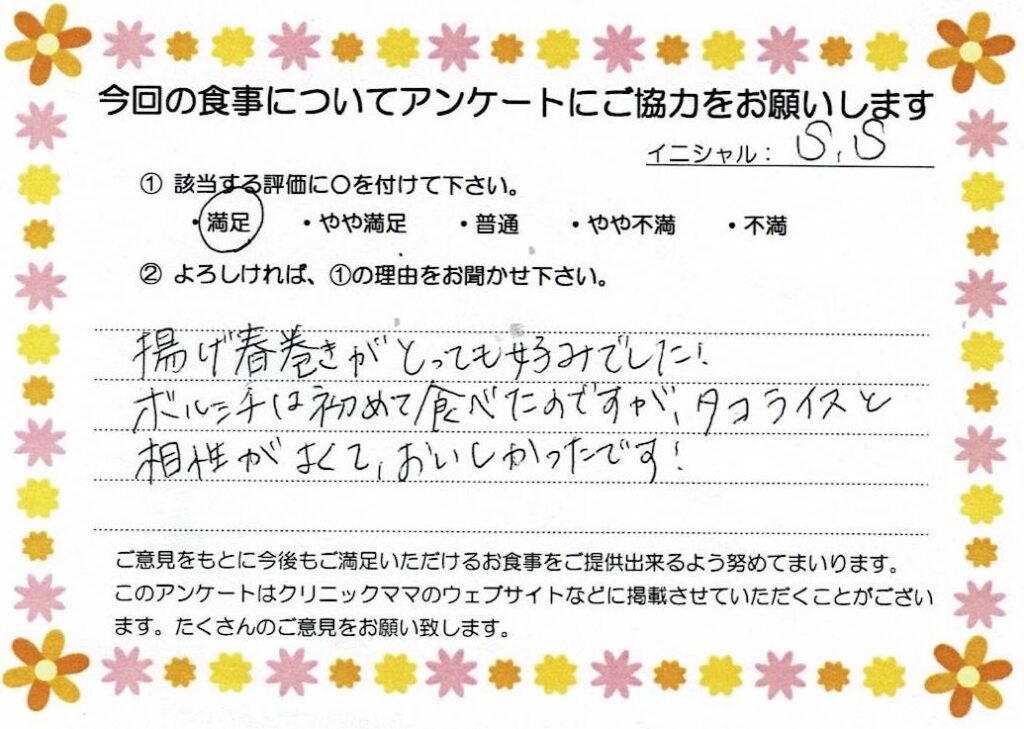 今回の食事についてアンケートにご協力をお願いします
イニシャル： S.S
① 該当する評価に〇を付けて下さい。
・満足 ・やや満足 ・普通 ・やや不満 ・不満
② よろしければ、①の理由をお聞かせ下さい。
揚げ春巻きがとっても好みでした!
ボルシチは初めて食べたのですが、タコライスと
相性がよくて、おいしかったです!
ご意見をもとに今後もご満足いただけるお食事をご提供出来るよう努めてまいります。
このアンケートはクリニックママのウェブサイトなどに掲載させていただくことがござい
ます。たくさんのご意見をお願い致します。